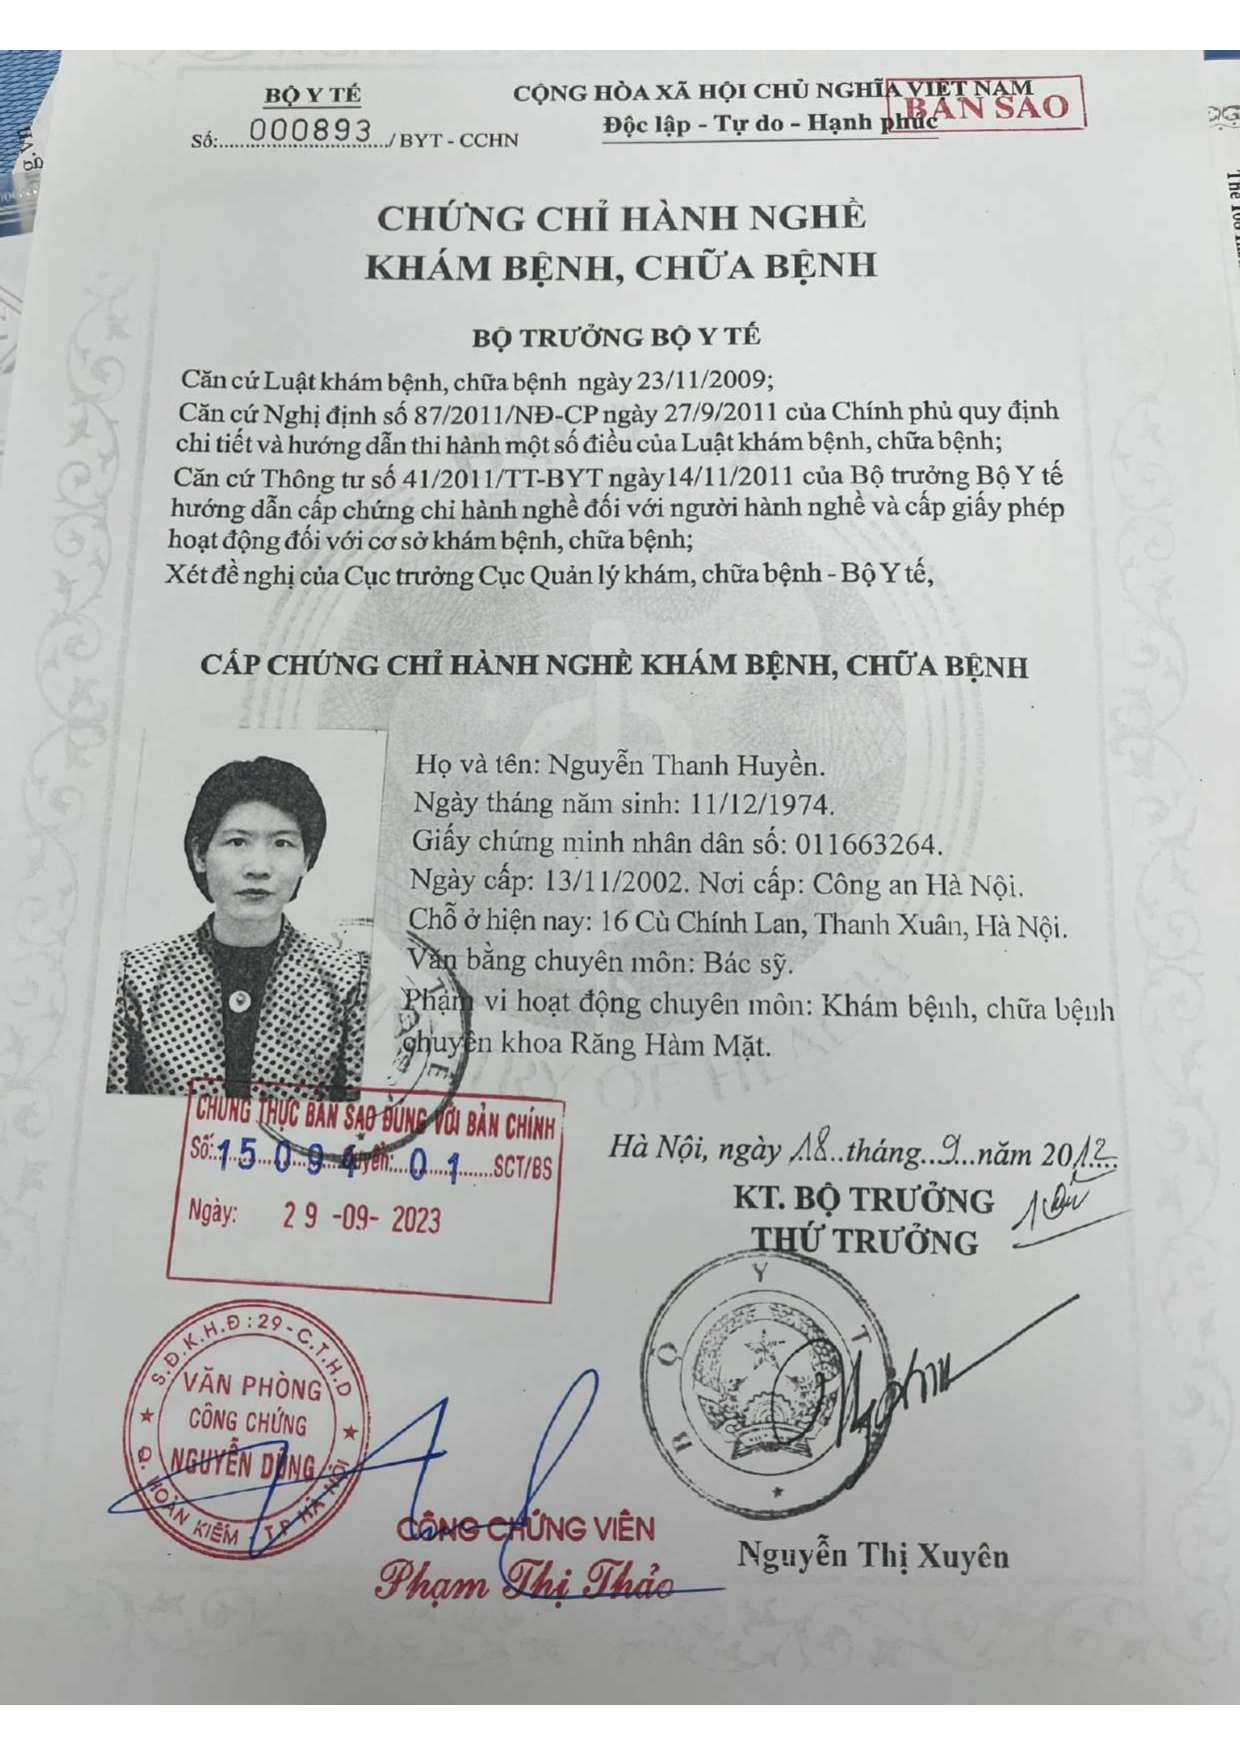 BỘ Y TẾ
Số:....000893..../BYT - CCHN
CỘNG HÒA XÃ HỘI CHỦ NGHĨA VIỆT NAM
Độc lập - Tự do - Hạnh phúc
BẢN SAO
CHỨNG CHỈ HÀNH NGHỀ
KHÁM BỆNH, CHỮA BỆNH
BỘ TRƯỞNG BỘ Y TẾ
Căn cứ Luật khám bệnh, chữa bệnh ngày 23/11/2009;
Căn cứ Nghị định số 87/2011/NĐ-CP ngày 27/9/2011 của Chính phủ quy định
chi tiết và hướng dẫn thi hành một số điều của Luật khám bệnh, chữa bệnh;
Căn cứ Thông tư số 41/2011/TT-BYT ngày14/11/2011 của Bộ trưởng Bộ Y tế
hướng dẫn cấp chứng chỉ hành nghề đối với người hành nghề và cấp giấy phép
hoạt động đối với cơ sở khám bệnh, chữa bệnh;
Xét đề nghị của Cục trưởng Cục Quản lý khám, chữa bệnh - Bộ Y tế,
CẤP CHỨNG CHỈ HÀNH NGHỀ KHÁM BỆNH, CHỮA BỆNH
Họ và tên: Nguyễn Thanh Huyền.
Ngày tháng năm sinh: 11/12/1974.
Giấy chứng minh nhân dân số: 011663264.
Ngày cấp: 13/11/2002. Nơi cấp: Công an Hà Nội.
Chỗ ở hiện nay: 16 Cù Chính Lan, Thanh Xuân, Hà Nội.
Văn bằng chuyên môn: Bác sỹ.
Phạm vi hoạt động chuyên môn: Khám bệnh, chữa bệnh
chuyên khoa Răng Hàm Mặt.
CHỨNG THỰC BẢN SAO ĐÚNG VỚI BẢN CHÍNH
Số:.15094.quyển:..01......SCT/BS
Ngày: 29 -09- 2023
Hà Nội, ngày 18..tháng..9...năm 2012
KT. BỘ TRƯỞNG
THỨ TRƯỞNG
BỘ Y TẾ
S.Đ.K.H.Đ: 29-C.T.H.D
VĂN PHÒNG
CÔNG CHỨNG
NGUYỄN DŨNG
Q. HOÀN KIẾM - T.P HÀ NỘI
CÔNG CHỨNG VIÊN
Phạm Thị Thảo
Nguyễn Thị Xuyên